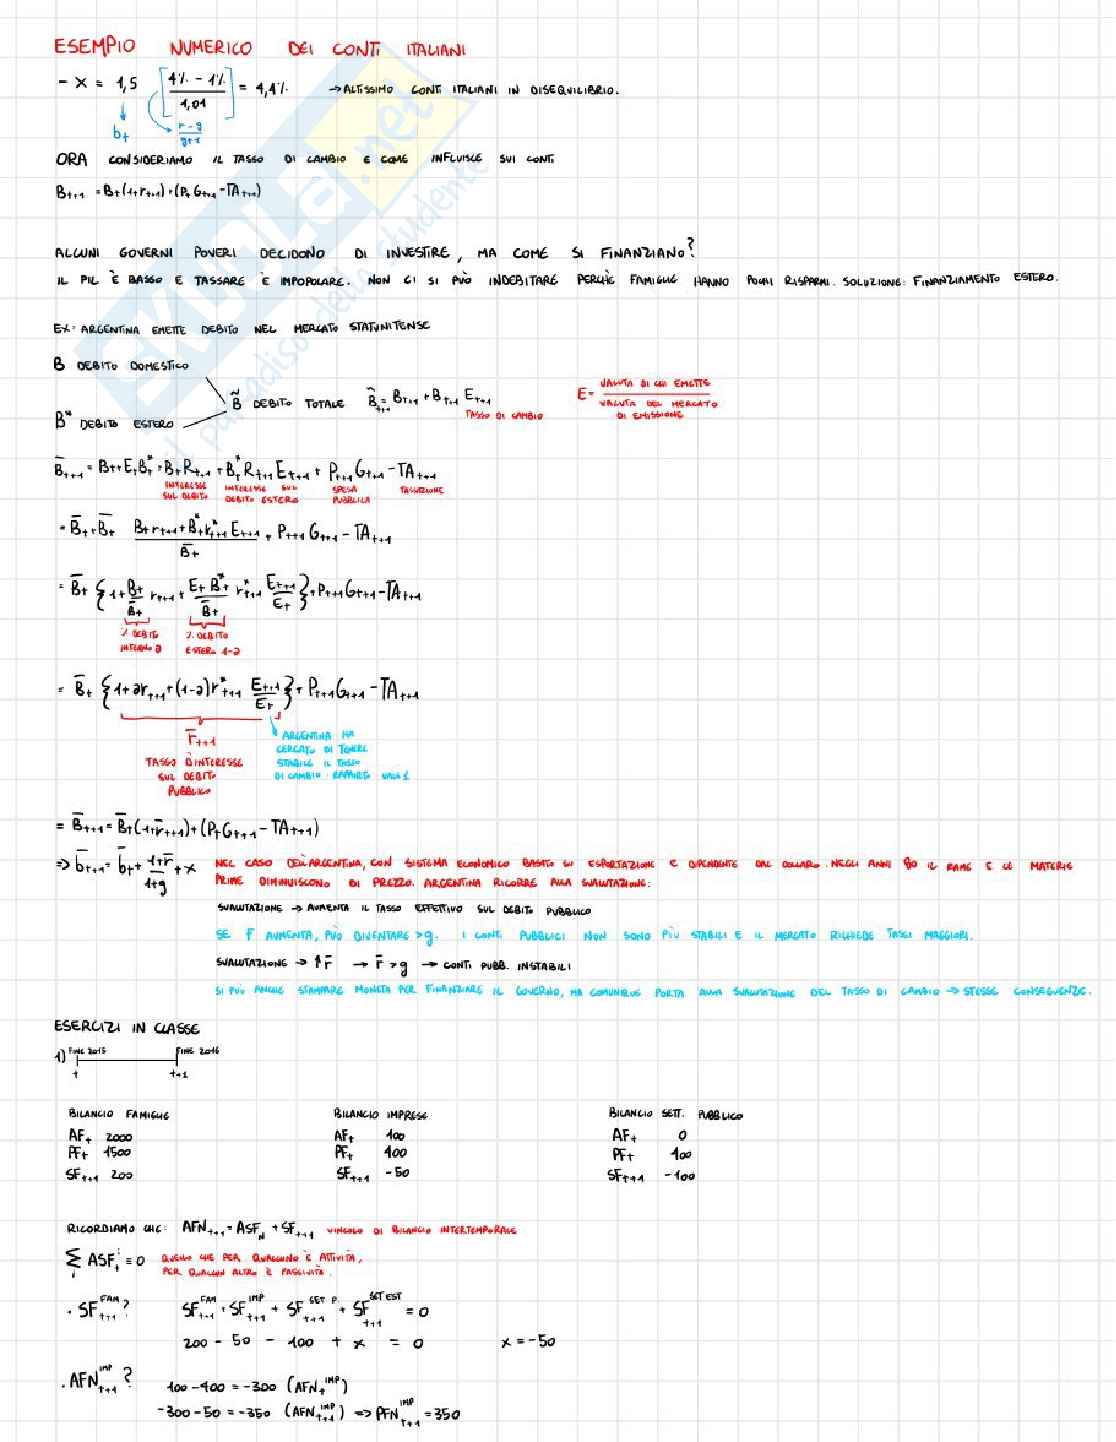 ESEMPIO NUMERICO DEI CONTI ITALIANI
- X = 1,5 [4% - 1% / 1,01] = 4,4% → ALTISSIMO CONTI ITALIANI IN DISEQUILIBRIO.
b_t r-g / g+1
ORA CONSIDERIAMO IL TASSO DI CAMBIO E COME INFLUISCE SUI CONTI
B_t+1 = B_t(1+r_t+1)+(P_t G_t+1 - TA_t+1)
ALCUNI GOVERNI POVERI DECIDONO DI INVESTIRE, MA COME SI FINANZIANO?
IL PIL È BASSO E TASSARE È IMPOPOLARE. NON CI SI PUÒ INDEBITARE PERCHÈ FAMIGLIE HANNO POCHI RISPARMI. SOLUZIONE: FINANZIAMENTO ESTERO.
EX: ARGENTINA EMETTE DEBITO NEL MERCATO STATUNITENSE
B DEBITO DOMESTICO
B̃ DEBITO TOTALE B̃_t+1 = B_t+1 + B_t+1 E_t+1
TASSO DI CAMBIO
E = VALUTA DI CHI EMETTE / VALUTA DEL MERCATO DI EMISSIONE
B* DEBITO ESTERO
B̄_t+1 = B_t + E_t B*_t = B_t R_t+1 + B*_t R_t+1 E_t+1 + P_t+1 G_t+1 - TA_t+1
INTERESSE SUL DEBITO
INTERESSE SUL DEBITO ESTERO
SPESA PUBBLICA
TASSAZIONE
= B̄_t + B̄_t B_t r_t+1 + B*_t r*_t+1 E_t+1 / B̄_t + P_t+1 G_t+1 - TA_t+1
= B̄_t {1 + B_t/B̄_t r_t+1 + E_t B*_t/B̄_t r*_t+1 E_t+1/E_t} + P_t+1 G_t+1 - TA_t+1
% DEBITO INTERNO a
% DEBITO ESTERO 1-a
= B̄_t {1 + a r_t+1 + (1-a) r*_t+1 E_t+1/E_t} + P_t+1 G_t+1 - TA_t+1
r̄_t+1
TASSO D'INTERESSE SUL DEBITO PUBBLICO
ARGENTINA HA CERCATO DI TENERE STABILE IL TASSO DI CAMBIO RAPPORTO VALE 1
= B̄_t+1 = B̄_t(1+r̄_t+1)+(P_t G_t+1 - TA_t+1)
=> b̄_t+1 = b̄_t + 1+r̄ / 1+g + x
NEL CASO DELL'ARGENTINA, CON SISTEMA ECONOMICO BASATO SU ESPORTAZIONE E DIPENDENTE DAL DOLLARO. NEGLI ANNI 80 IL RAME E LE MATERIE
PRIME DIMINUISCONO DI PREZZO. ARGENTINA RICORRE ALLA SVALUTAZIONE:
SVALUTAZIONE → AUMENTA IL TASSO EFFETTIVO SUL DEBITO PUBBLICO
SE r̄ AUMENTA, PUÒ DIVENTARE > g. I CONTI PUBBLICI NON SONO PIÙ STABILI E IL MERCATO RICHIEDE TASSI MAGGIORI.
SVALUTAZIONE → ↑r̄ → r̄ > g → CONTI PUBB. INSTABILI
SI PUÒ ANCHE STAMPARE MONETA PER FINANZIARE IL GOVERNO, MA COMUNQUE PORTA ALLA SVALUTAZIONE DEL TASSO DI CAMBIO → STESSE CONSEGUENZE.
ESERCIZI IN CLASSE
1) FINE 2015 FINE 2016
t t+1
BILANCIO FAMIGLIE BILANCIO IMPRESE BILANCIO SETT. PUBBLICO
AF_t 2000 AF_t 100 AF_t 0
PF_t 1500 PF_t 400 PF_t 100
SF_t+1 200 SF_t+1 -50 SF_t+1 -100
RICORDIAMO CHE: AFN_t+1 = ASF_N + SF_t+1 VINCOLO DI BILANCIO INTERTEMPORALE
Σ_i ASF^i_t = 0 QUELLO CHE PER QUALCUNO È ATTIVITÀ,
PER QUALCUN ALTRO È PASSIVITÀ.
. SF^FAM_t+1 ? SF^FAM_t+1 + SF^IMP_t+1 + SF^SET P._t+1 + SF^SET EST_t+1 = 0
200 - 50 - 100 + x = 0 x = -50
. AFN^IMP_t+1 ? 100 - 400 = -300 (AFN_t^IMP)
-300 - 50 = -350 (AFN^IMP_t+1) => PFN^IMP_t+1 = 350
SKUOLA.net
il paradiso dello studente